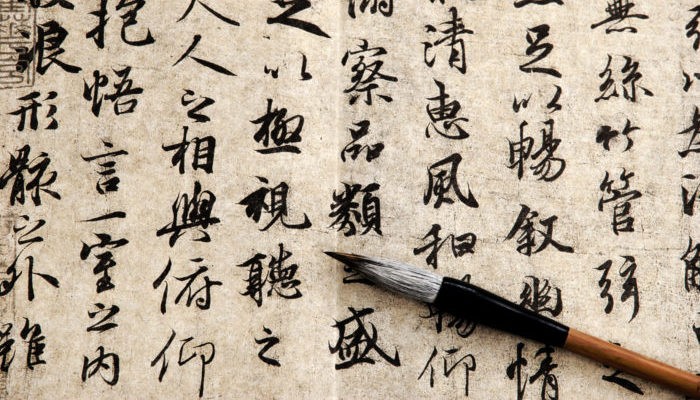 無絲竹管弦之
足以暢叙幽情
清惠風和暢仰
察品類之盛
以極視聽之
人之相與俯仰
抱悟言一室之内
浪形骸之外雖